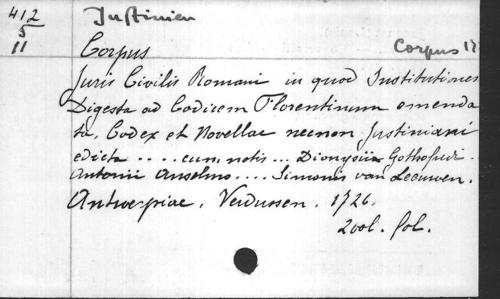 412
5
11
Justinien
Corpus
Corpus 17
Juris Civilis Romani in quod Institutiones
Digesta ad Codicem Florentinum emenda
ta, Codex et Novellae necnon Justiniani
edicta .... cum notis ... Dionysii Gothofredi.
Antonii Anselmo .... Simonis van Leeuwen.
Antverpiae. Verdussen. 1726.
2 vol. fol.